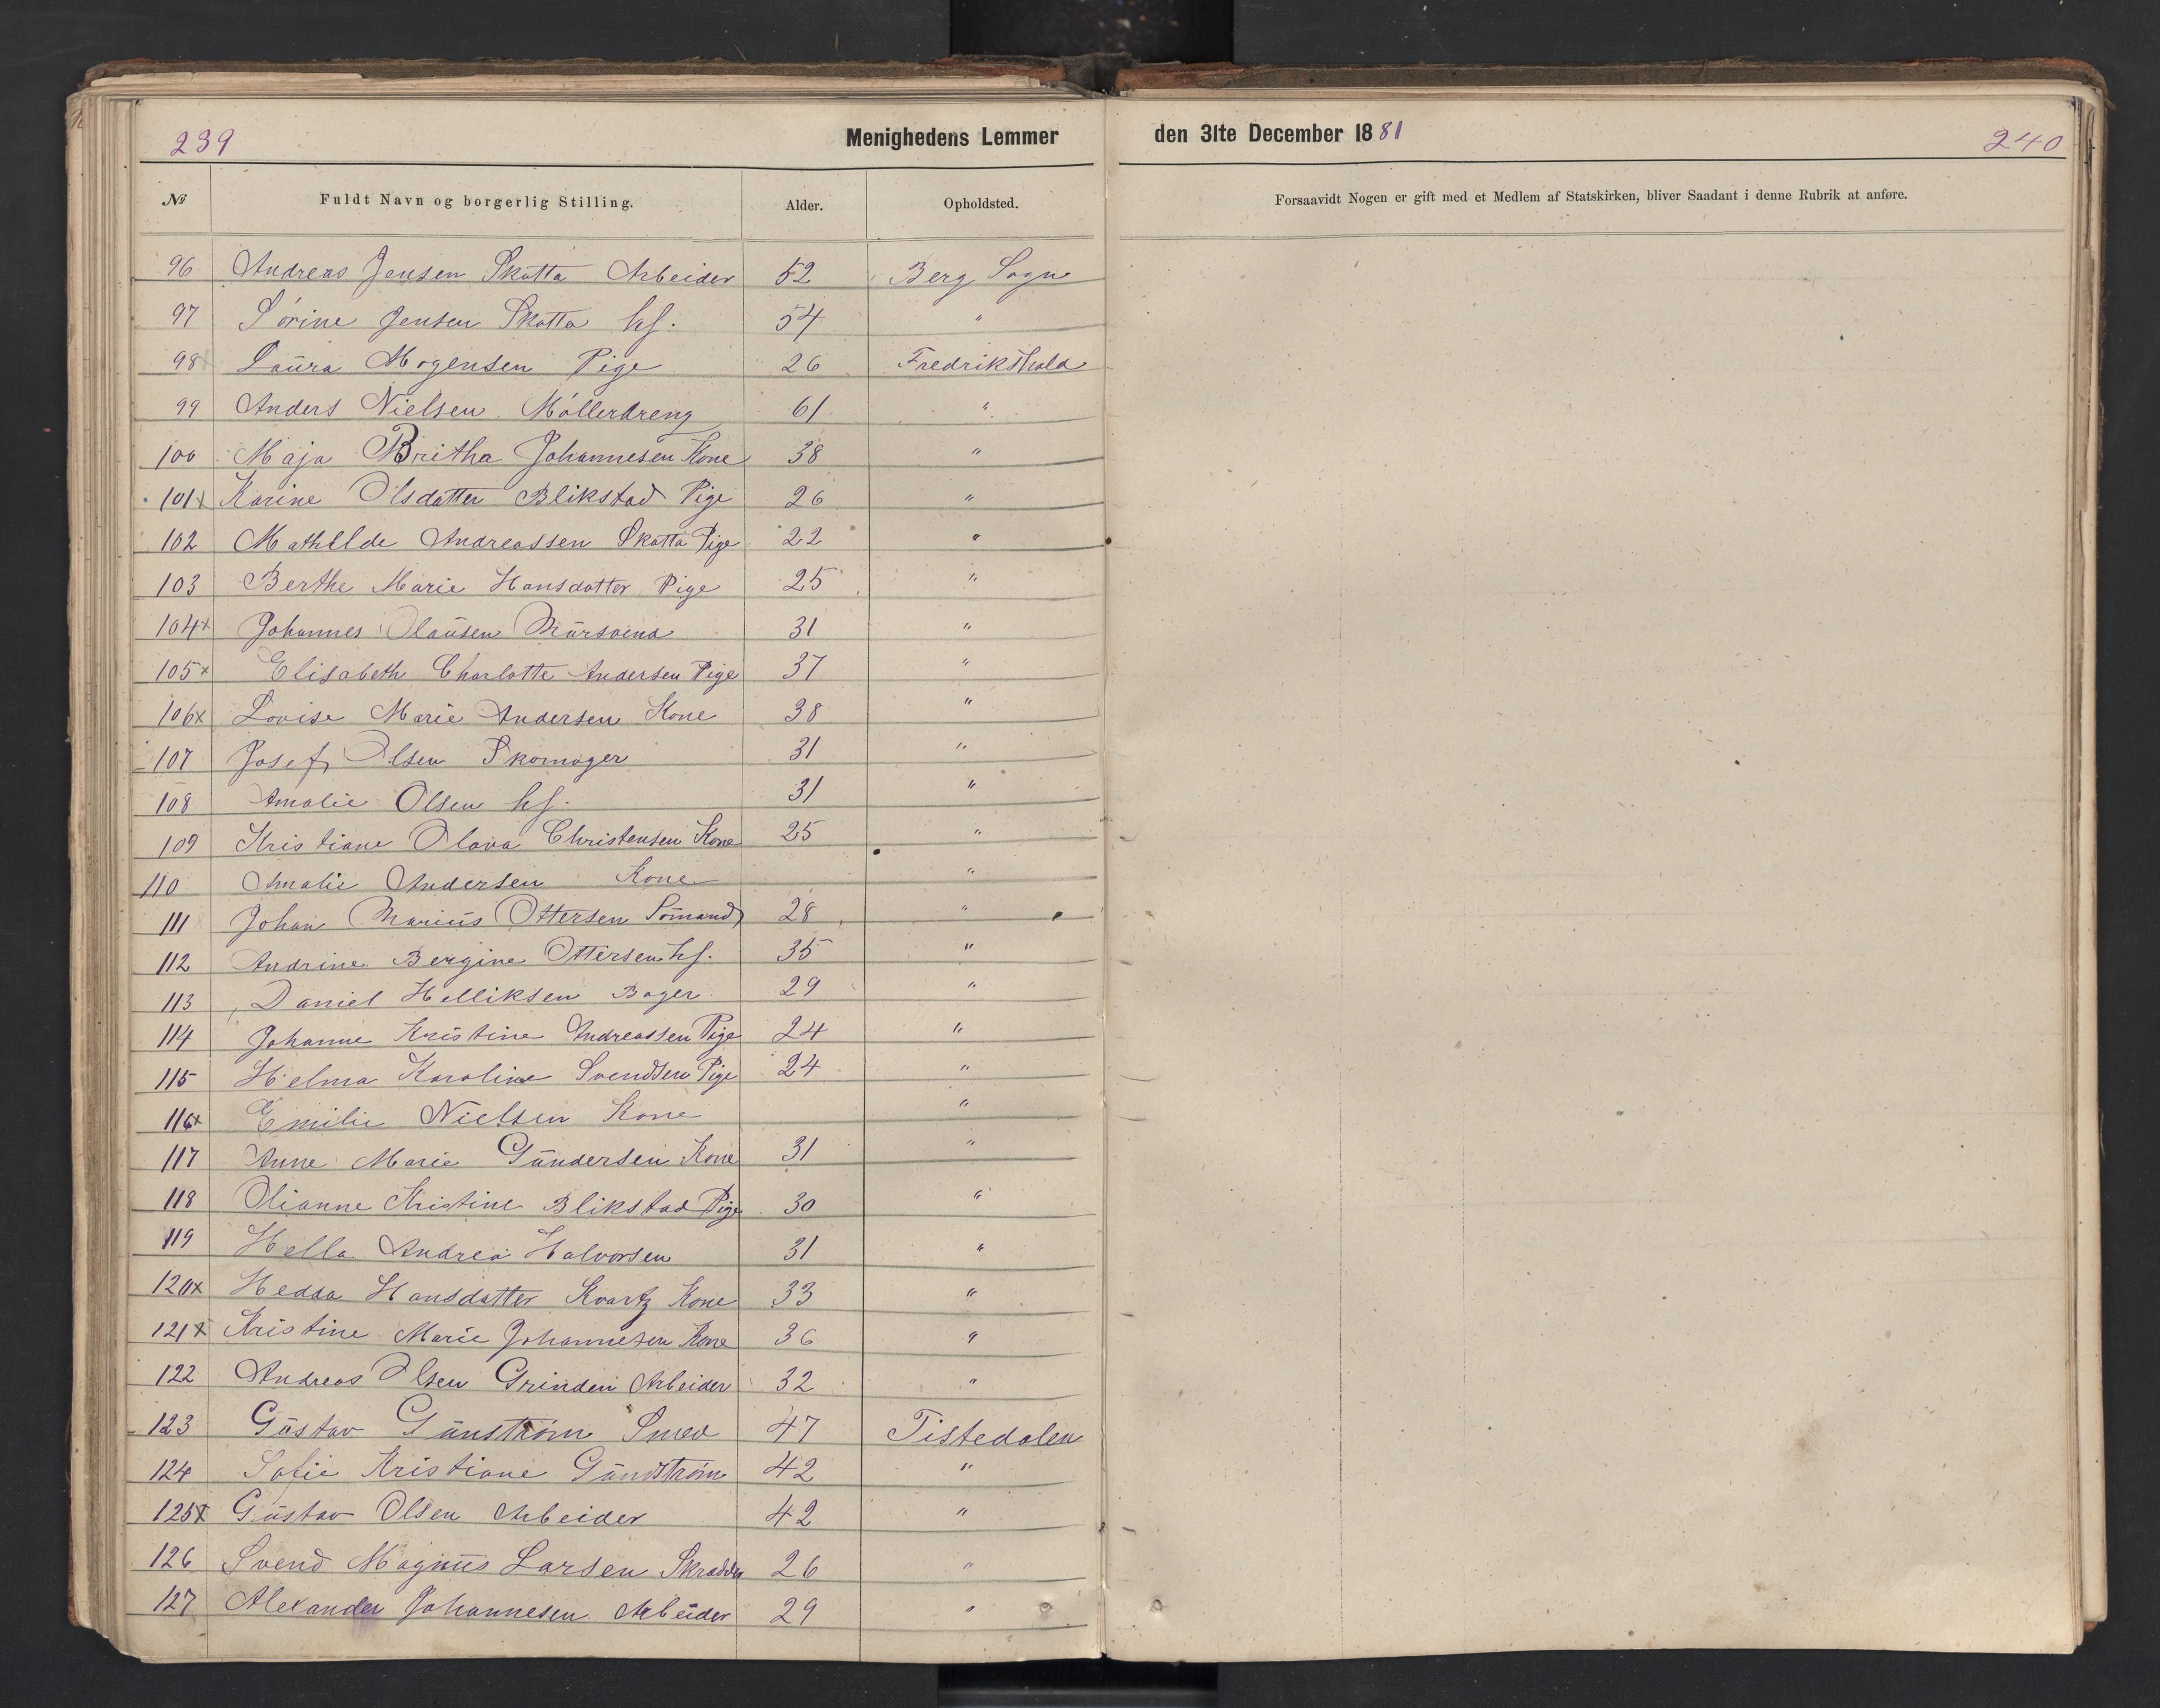 239
Menighedens Lemmer
den 31te December 1881
240
№ Fuldt Navn og borgerlig Stilling. Alder. Opholdsted. Forsaavidt Nogen er gift med et Medlem af Statskirken, bliver Saadant i denne Rubrik at anføre.
96 Andreas Jensen Skatta Arbeider 52 Berg Sogn
97 Sørine Jensen Skatta hf. 54 "
98 Laura Mogensen Pige 26 Fredrikshald
99 Anders Nielsen Møllerdreng 61 "
100 Maja Britha Johannesen Kone 38 "
101x Karine Olsdatter Blikstad Pige 26 "
102 Mathilde Andreassen Skatta Pige 22 "
103 Berthe Marie Hansdatter Pige 25 "
104x Johannes Olausen Mursvend 31 "
105x Elisabeth Charlotte Andersen Pige 37 "
106x Lovise Marie Andersen Kone 38 "
107 Josef Olsen Skomager 31 "
108 Amalie Olsen hf. 31 "
109 Kristiane Olava Christensen Kone 25 "
110 Amalie Andersen Kone "
111 Johan Marius Ottersen Sømand 28 "
112 Andrine Bergine Ottersen hf. 35 "
113 Daniel Helliksen Bager 29 "
114 Johanne Kristine Andreassen Pige 24 "
115 Helma Karoline Svendsen Pige 24 "
116x Emilie Nielsen Kone "
117 Anne Marie Gundersen Kone 31 "
118 Olianne Kristine Blikstad Pige 30 "
119 Hella Andrea Halvorsen 31 "
120x Hedda Hansdatter Kvartz Kone 33 "
121x Kristine Marie Johannesen Kone 36 "
122 Andreas Olsen Grinden Arbeider 32 "
123 Gustav Gunstrøm Smed 47 Tistedalen
124 Sofie Kristiane Gundstrøm 42 "
125x Gustav Olsen Arbeider 42 "
126 Svend Magnus Larsen Skrædder 26 "
127 Alexander Johannesen Arbeider 29 "